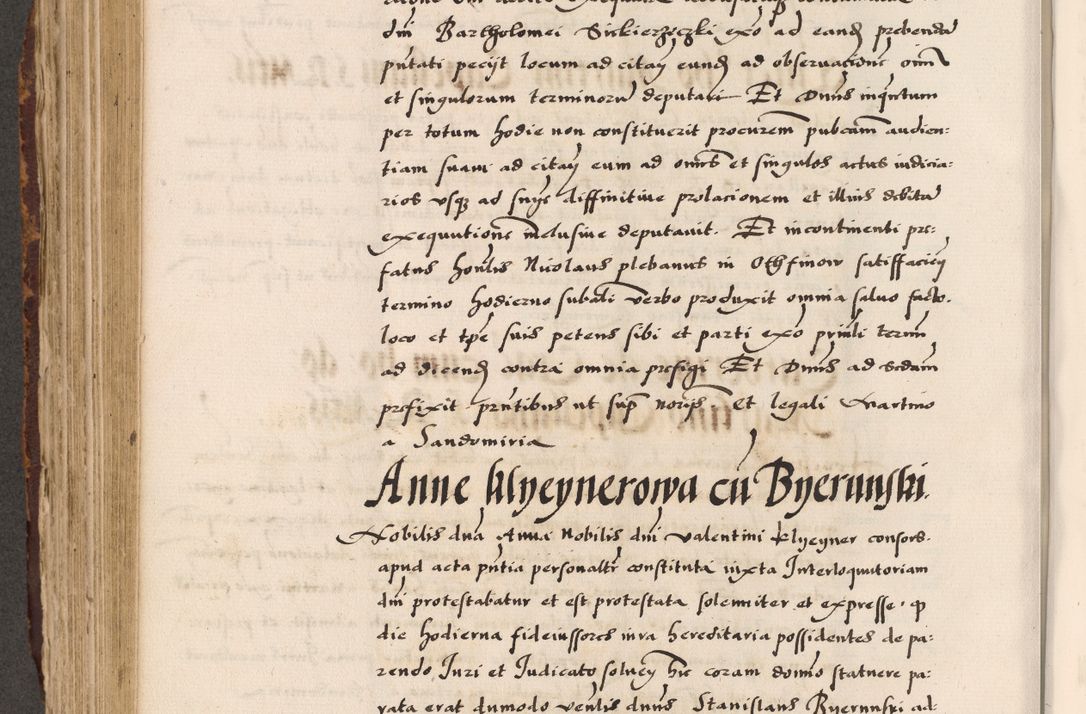 dni Bartholomei Sickierzeczki exo ad eand prebendam
pntati pecijt locum ad citan eund ad observacione oim
et singulorum terminoru deputari Et Dnus inquitum
per totum hodie non constituerit procurem pubcam audien:
tiam suam ad citan eum ad omes et singulos actus iudicia:
rios usq ad snie diffinitive prolacionem et illius debita
exequutione inclusive deputavit. Et incontinenti pre:
fatus honlis Nicolaus plebanus in Othfinow satisfacien
termino hodierno subali verbo produxit omnia salvo iusto.
loco et tpe suis petens sibi et parti exo priuli termi
ad dicend contra omnia prefigi Et Dnus ad Sedam
prefixit pntibus ut sup noris Et legali Martino
a Sandomiria
Anne klyeynerowa cu Byerunski.
Nobilis dna Anna Nobilis dni Valentini klyeyner consors.
apud acta pntia personalr constituta iuxta Interloquutoriam
dni protestabatur et est protestata solenniter et expresse. q
die hodierna fideiussores iura hereditaria possidentes de pa:
rendo Iuri et Iudicato solven hic coram domo statuere pa:
rata erat dumodo venlis dnus Stanislaus Byerunski ad: